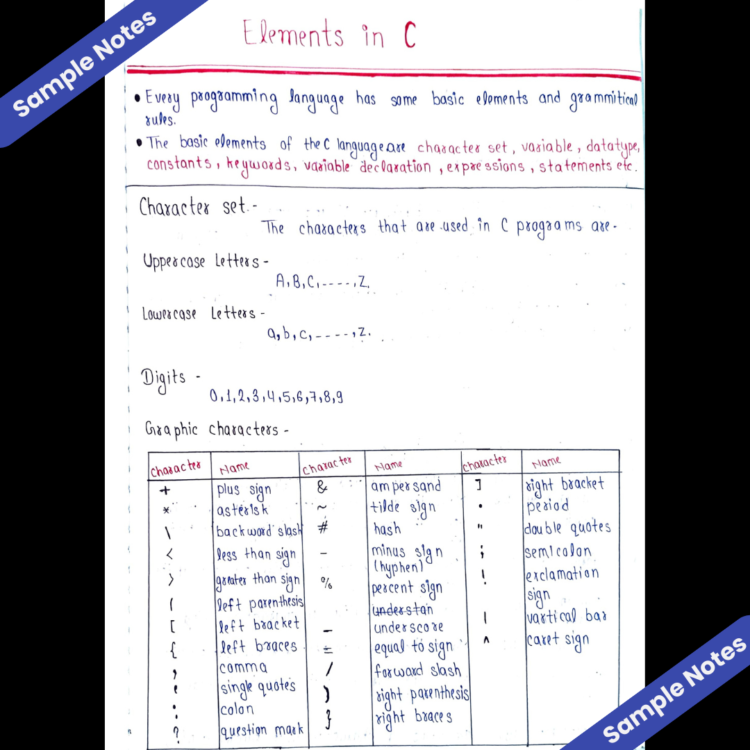 Sample Notes
Elements in C
• Every programming language has some basic elements and grammitical
rules.
• The basic elements of the C language are character set, variable, datatype,
constants, keywords, variable declaration, expressions, statements etc.
Character set.-
The characters that are used in C programs are-
Uppercase Letters -
A,B,C,----,Z.
Lowercase Letters -
a,b,c,----,z.
Digits -
0,1,2,3,4,5,6,7,8,9
Graphic characters -
Character Name Character Name Character Name
+ plus sign & ampersand ] right bracket
* asterisk ~ tilde sign . period
\ backword slash # hash " double quotes
< less than sign - minus sign ; semicolon
(hyphen)
> greater than sign % percent sign ! exclamation
sign
( left parenthesis understan | vartical bar
[ left bracket _ underscore ^ caret sign
{ left braces = equal to sign
, comma / forward slash
' single quotes ) right parenthesis
: colon } right braces
? question mark
Sample Notes